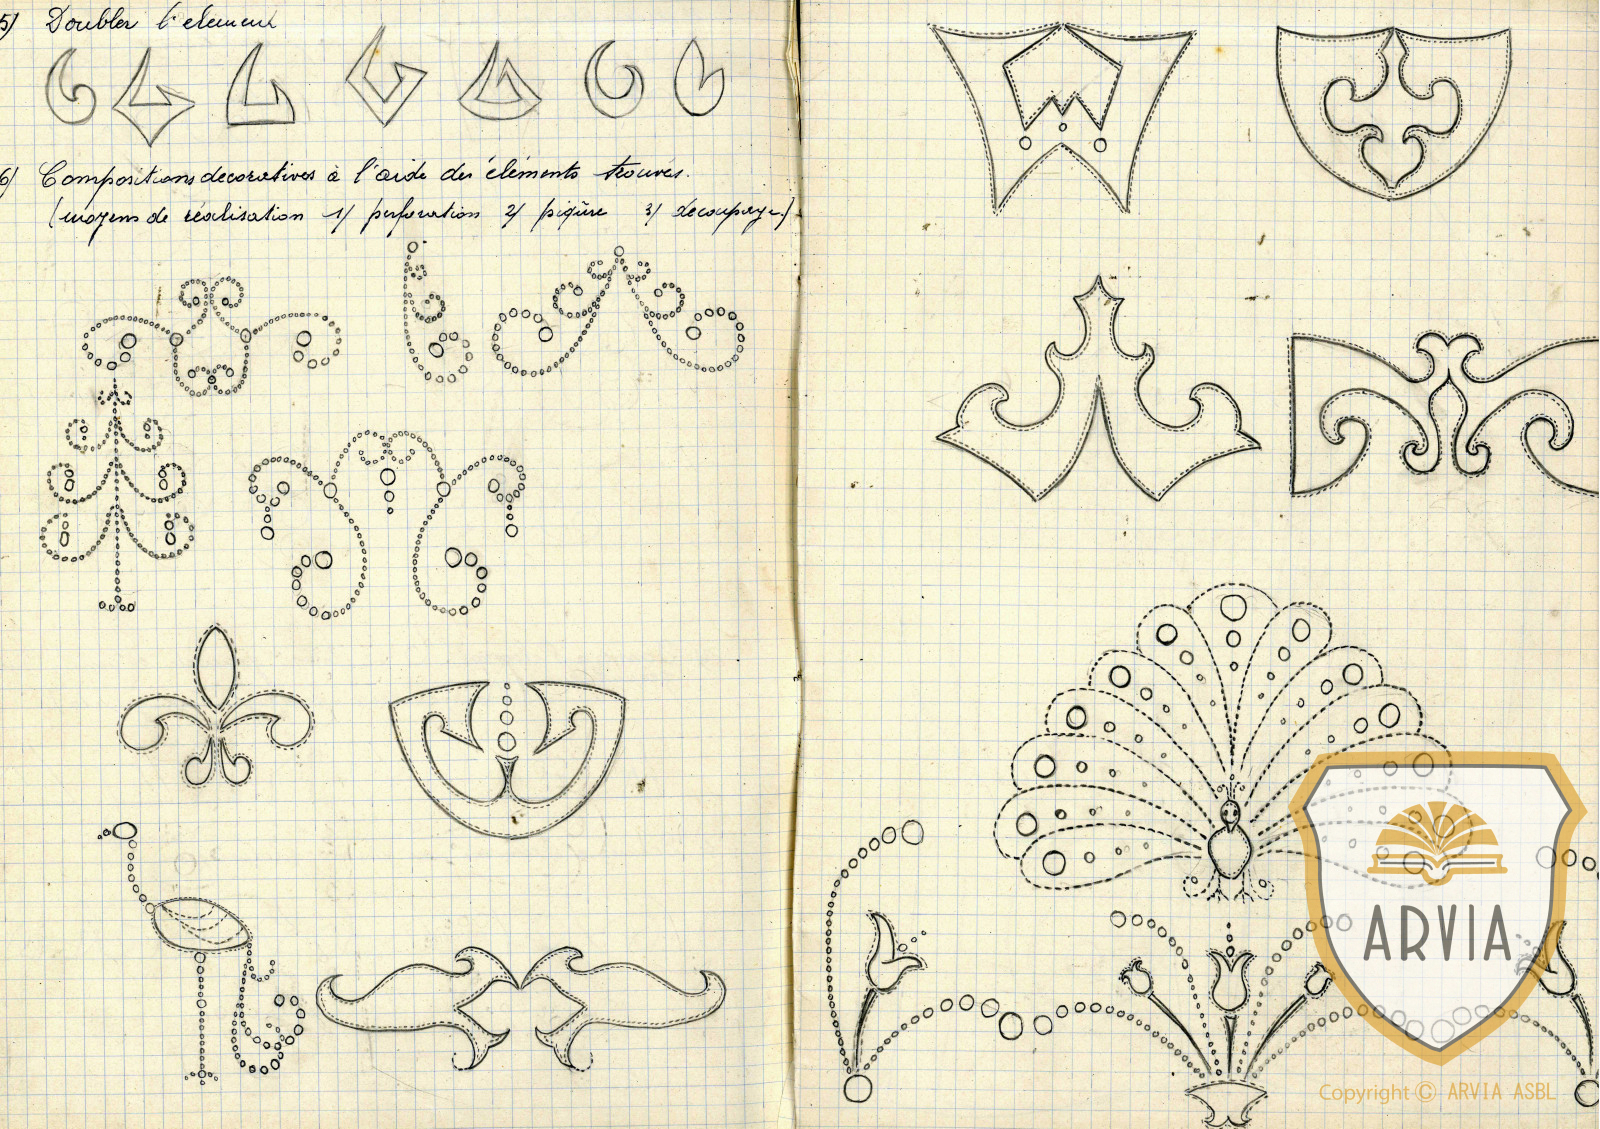 5) Doubler l'element
6) Compositions decoratives à l'aide des éléments trouvés.
(moyens de réalisation 1/ perforation 2/ piqûre 3/ découpage.)
ARVIA
Copyright © ARVIA ASBL